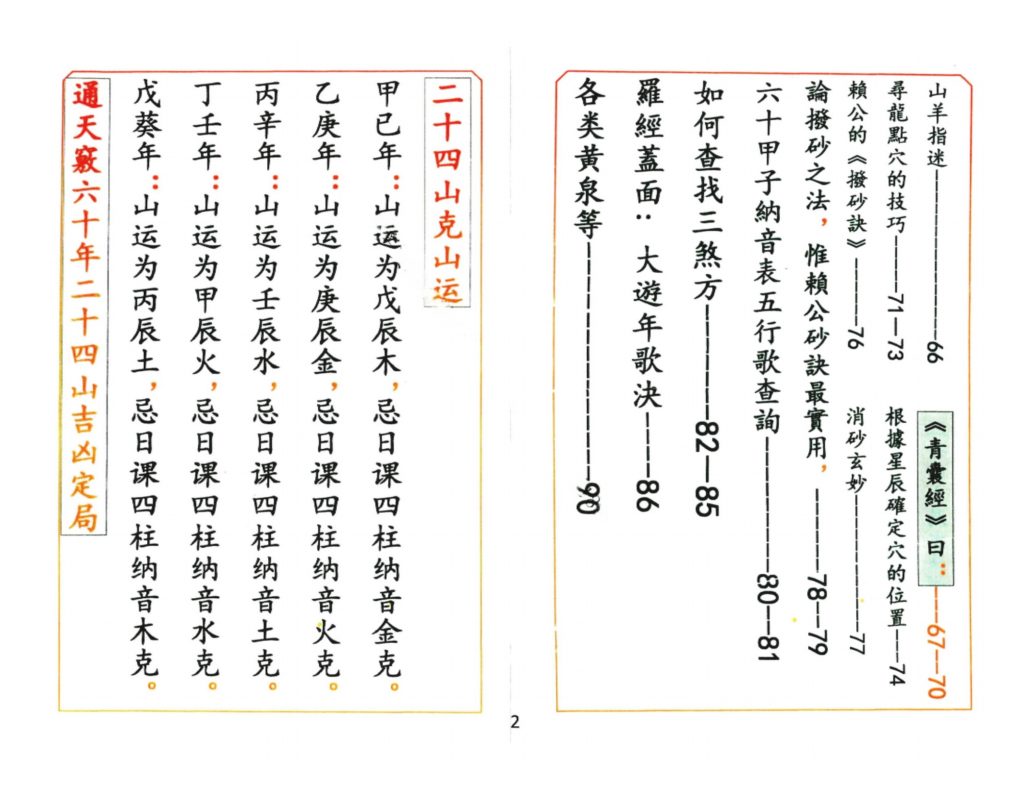 山羊指迷————66
《青囊經》曰：——67—70
尋龍點穴的技巧——71—73
根據星辰確定穴的位置——74
賴公的《撥砂訣》——76
消砂玄妙————77
論撥砂之法，惟賴公砂訣最實用，——78—79
六十甲子納音表五行歌查詢————80—81
如何查找三煞方————82—85
羅經蓋面：大遊年歌決——86
各类黃泉等————90
二十四山克山运
甲已年：山运为戊辰木，忌日课四柱纳音金克。
乙庚年：山运为庚辰金，忌日课四柱纳音火克。
丙辛年：山运为壬辰水，忌日课四柱纳音土克。
丁壬年：山运为甲辰火，忌日课四柱纳音水克。
戊葵年：山运为丙辰土，忌日课四柱纳音木克。
通天竅六十年二十四山吉凶定局
2